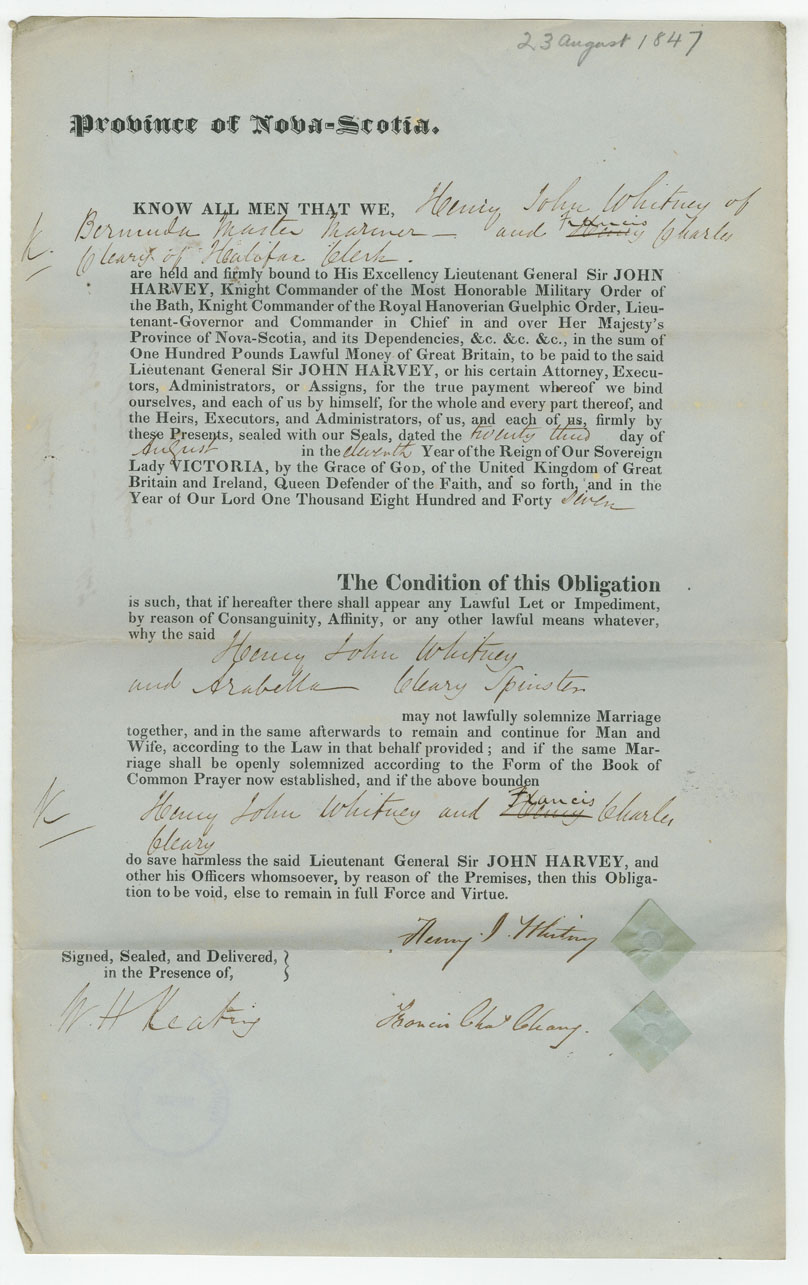 23 August 1847
Province of Nova-Scotia.
KNOW ALL MEN THAT WE, Henry John Whitney of
K. Bermuda Master Mariner — and Francis Henry Charles
Cleary of Halifax Clerk.
are held and firmly bound to His Excellency Lieutenant General Sir JOHN
HARVEY, Knight Commander of the Most Honorable Military Order of
the Bath, Knight Commander of the Royal Hanoverian Guelphic Order, Lieu-
tenant-Governor and Commander in Chief in and over Her Majesty's
Province of Nova-Scotia, and its Dependencies, &c. &c. &c., in the sum of
One Hundred Pounds Lawful Money of Great Britain, to be paid to the said
Lieutenant General Sir JOHN HARVEY, or his certain Attorney, Execu-
tors, Administrators, or Assigns, for the true payment whereof we bind
ourselves, and each of us by himself, for the whole and every part thereof, and
the Heirs, Executors, and Administrators, of us, and each of us, firmly by
these Presents, sealed with our Seals, dated the twenty third day of
August in the eleventh Year of the Reign of Our Sovereign
Lady VICTORIA, by the Grace of GOD, of the United Kingdom of Great
Britain and Ireland, Queen Defender of the Faith, and so forth, and in the
Year of Our Lord One Thousand Eight Hundred and Forty seven
The Condition of this Obligation
is such, that if hereafter there shall appear any Lawful Let or Impediment,
by reason of Consanguinity, Affinity, or any other lawful means whatever,
why the said
Henry John Whitney
and Arabella Cleary Spinster
may not lawfully solemnize Marriage
together, and in the same afterwards to remain and continue for Man and
Wife, according to the Law in that behalf provided; and if the same Mar-
riage shall be openly solemnized according to the Form of the Book of
Common Prayer now established, and if the above bounden
K Henry John Whitney and Francis Henry Charles
Cleary
do save harmless the said Lieutenant General Sir JOHN HARVEY, and
other his Officers whomsoever, by reason of the Premises, then this Obliga-
tion to be void, else to remain in full Force and Virtue.
Henry J. Whitney
Signed, Sealed, and Delivered,
in the Presence of,
W. H Keating
Francis Chas Cleary.